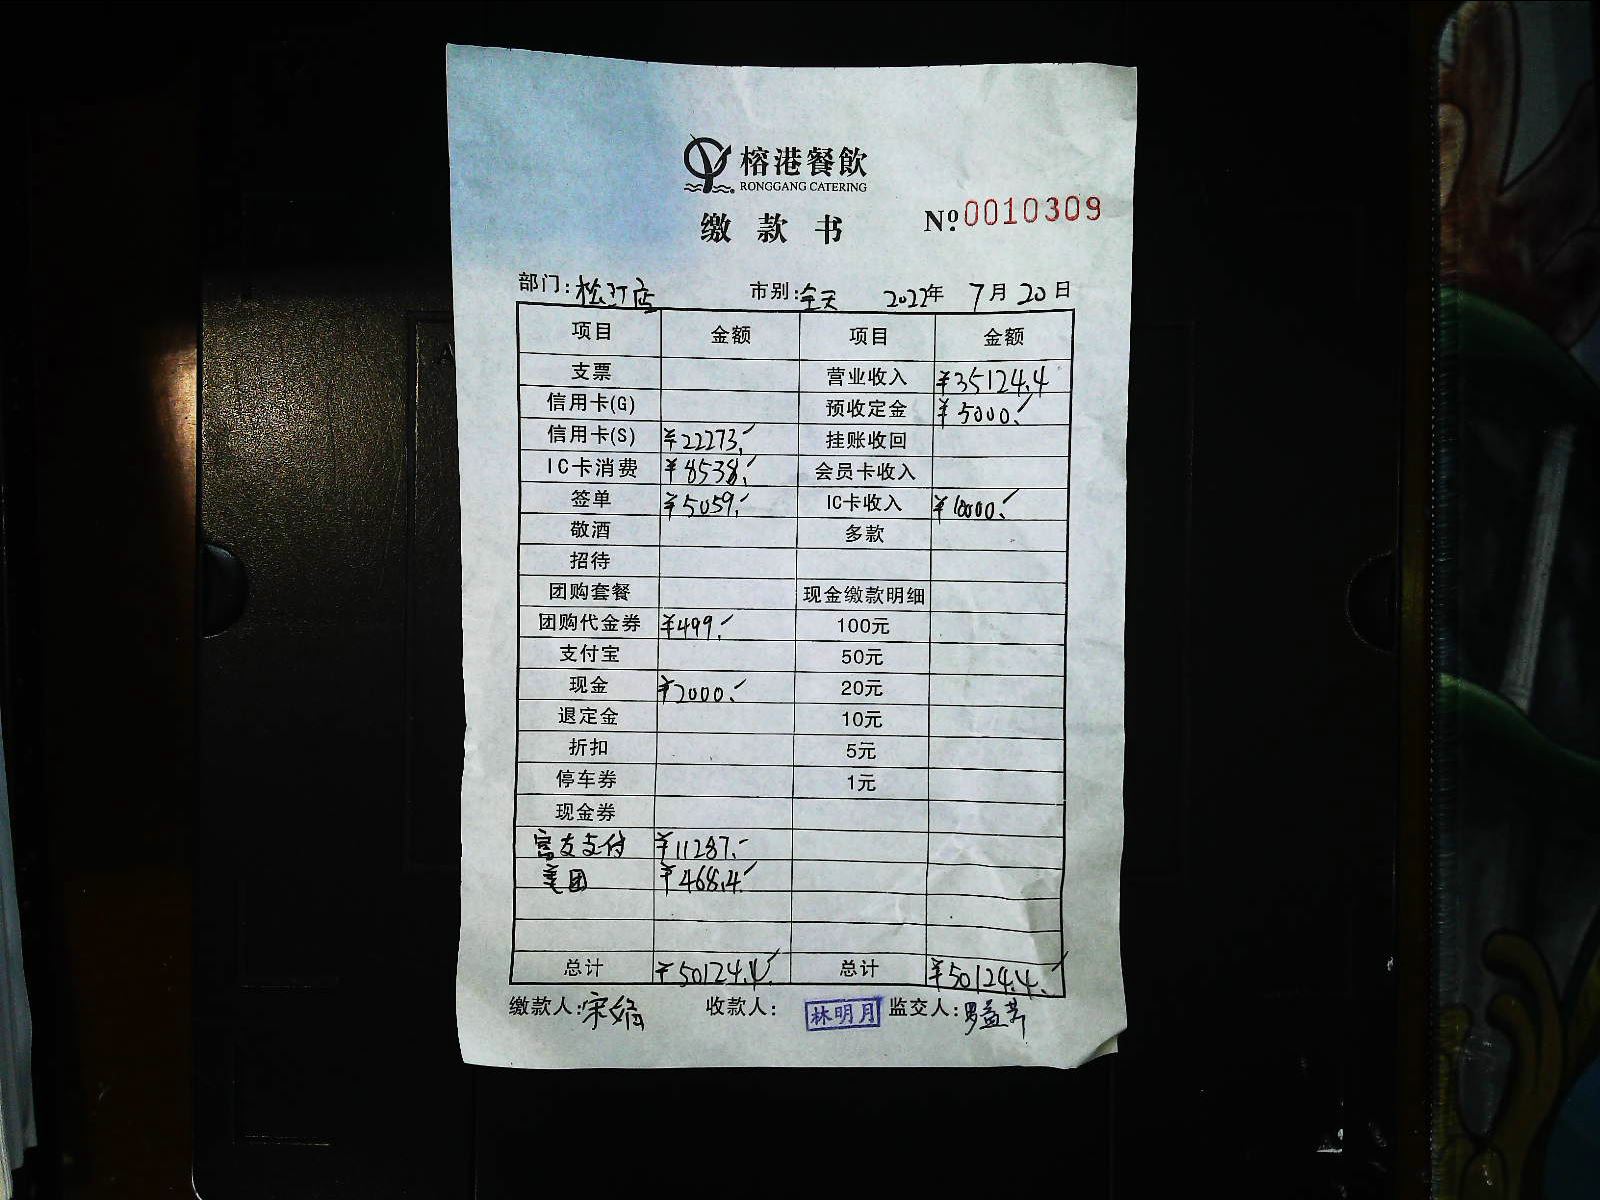 榕港餐飲
RONGGANG CATERING
缴款书 №0010309
部门:松江店 市别:全天 2022年 7月 20日
项目 金额 项目 金额
支票 营业收入 ¥35124.4
信用卡(G) 预收定金 ¥5000.-
信用卡(S) ¥22273.- 挂账收回
IC卡消费 ¥8538.- 会员卡收入
签单 ¥5059.- IC卡收入 ¥10000.-
敬酒 多款
招待
团购套餐 现金缴款明细
团购代金券 ¥499.- 100元
支付宝 50元
现金 ¥2000.- 20元
退定金 10元
折扣 5元
停车券 1元
现金券
富友支付 ¥11287.-
美团 ¥468.4
总计 ¥50124.4 总计 ¥50124.4
缴款人:宋娟 收款人: 林明月 监交人:罗益芳